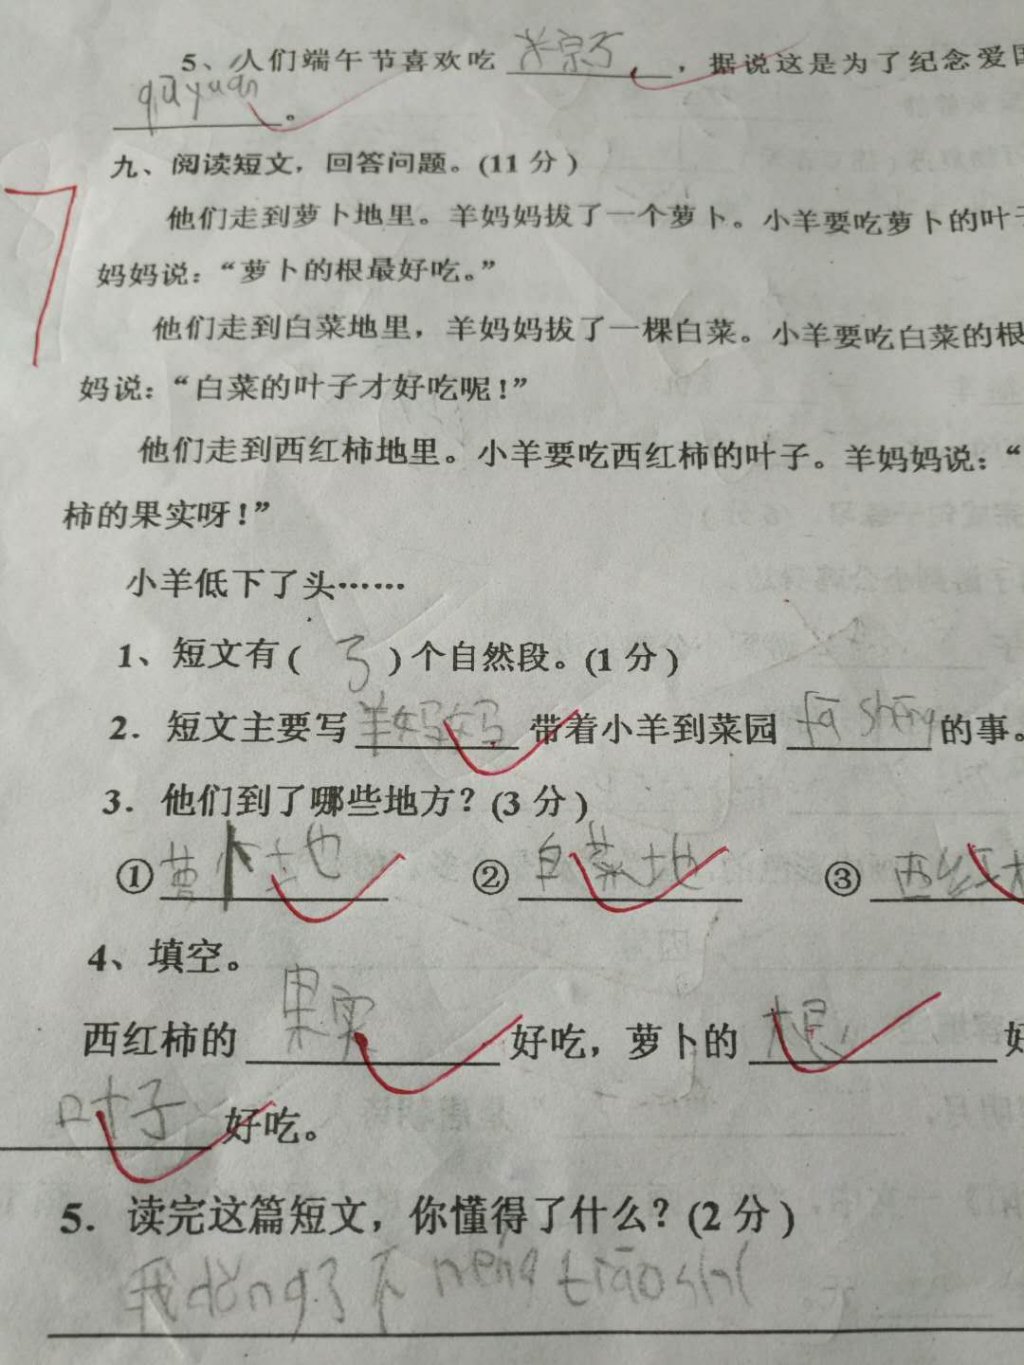 5、人们端午节喜欢吃 米宗子 ，据说这是为了纪念爱国
qūyuán 。
九、阅读短文，回答问题。(11 分)
他们走到萝卜地里。羊妈妈拔了一个萝卜。小羊要吃萝卜的叶子
妈妈说：“萝卜的根最好吃。”
他们走到白菜地里，羊妈妈拔了一棵白菜。小羊要吃白菜的根
妈说：“白菜的叶子才好吃呢！”
他们走到西红柿地里。小羊要吃西红柿的叶子。羊妈妈说：“
柿的果实呀！”
小羊低下了头……
1、短文有( 3 )个自然段。(1 分)
2．短文主要写 羊妈妈 带着小羊到菜园 fā shēng 的事。
3．他们到了哪些地方？(3 分)
① 卜地 ② 白菜地 ③ 西红
4、填空。
西红柿的 果实 好吃，萝卜的 根 好
叶子 好吃。
5．读完这篇短文，你懂得了什么？(2 分)
我dǒng了不néng tiāo shí
7